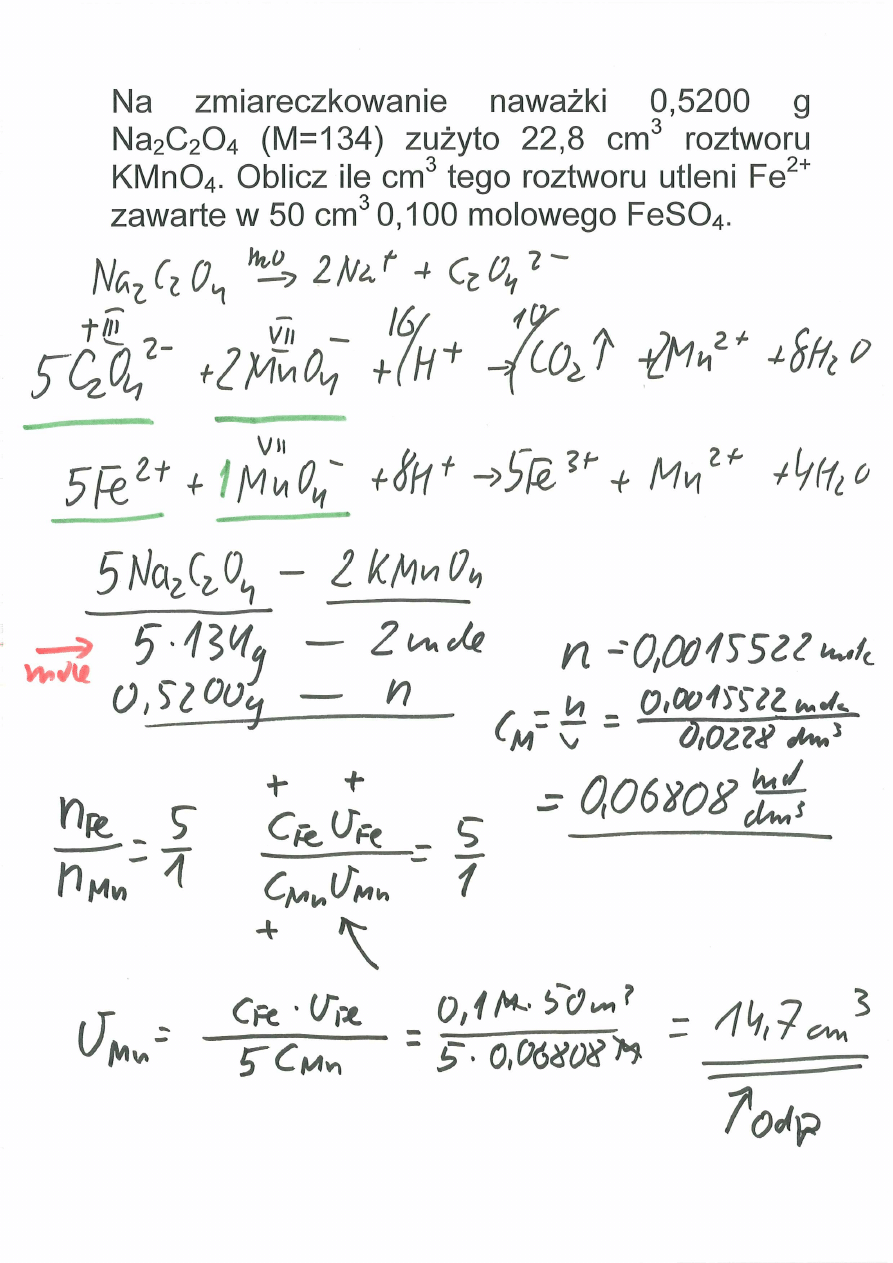 Na zmiareczkowanie naważki 0,5200 g
Na₂C₂O₄ (M=134) zużyto 22,8 cm³ roztworu
KMnO₄. Oblicz ile cm³ tego roztworu utleni Fe²⁺
zawarte w 50 cm³ 0,100 molowego FeSO₄.
Na₂C₂O₄ →(H₂O) 2Na⁺ + C₂O₄²⁻
+III VII
5C₂O₄²⁻ + 2MnO₄⁻ + 16H⁺ → 10CO₂↑ + 2Mn²⁺ + 8H₂O
VII
5Fe²⁺ + 1MnO₄⁻ + 8H⁺ → 5Fe³⁺ + Mn²⁺ + 4H₂O
5Na₂C₂O₄ – 2KMnO₄
mole → 5·134g – 2 mole
0,5200g – n
n = 0,0015522 mole
C_M = n/V = 0,0015522 mola / 0,0228 dm³
= 0,06808 mol/dm³
n_Fe / n_Mn = 5/1
+ +
C_Fe V_Fe / C_Mn V_Mn = 5/1
+ ↖
V_Mn = C_Fe · V_Fe / 5 C_Mn = 0,1M · 50 cm³ / 5 · 0,06808 M = 14,7 cm³
↑ odp